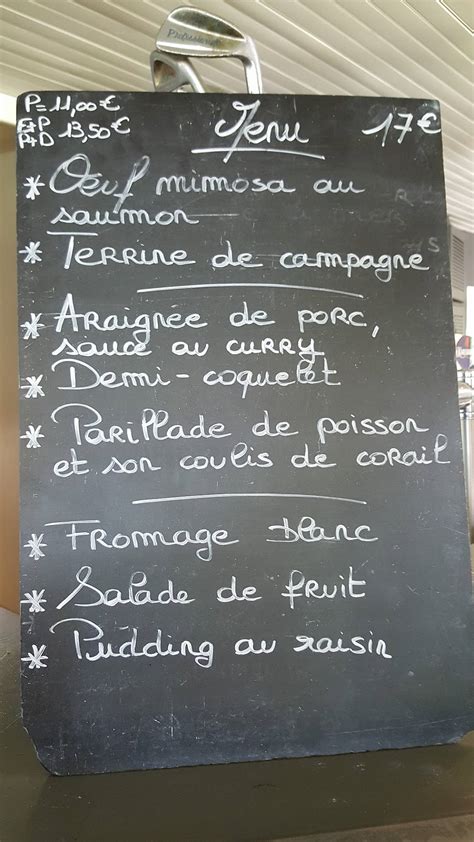 Professional
P = 11,00 €
E+P
P+D 13,50 €
Menu
17 €
* Oeuf mimosa au
saumon
* Terrine de campagne
* Araignee de porc,
sauce au curry
* Demi-coquelet
* Parillade de poisson
et son coulis de corail
* Fromage blanc
* Salade de fruit
* Pudding au raisin